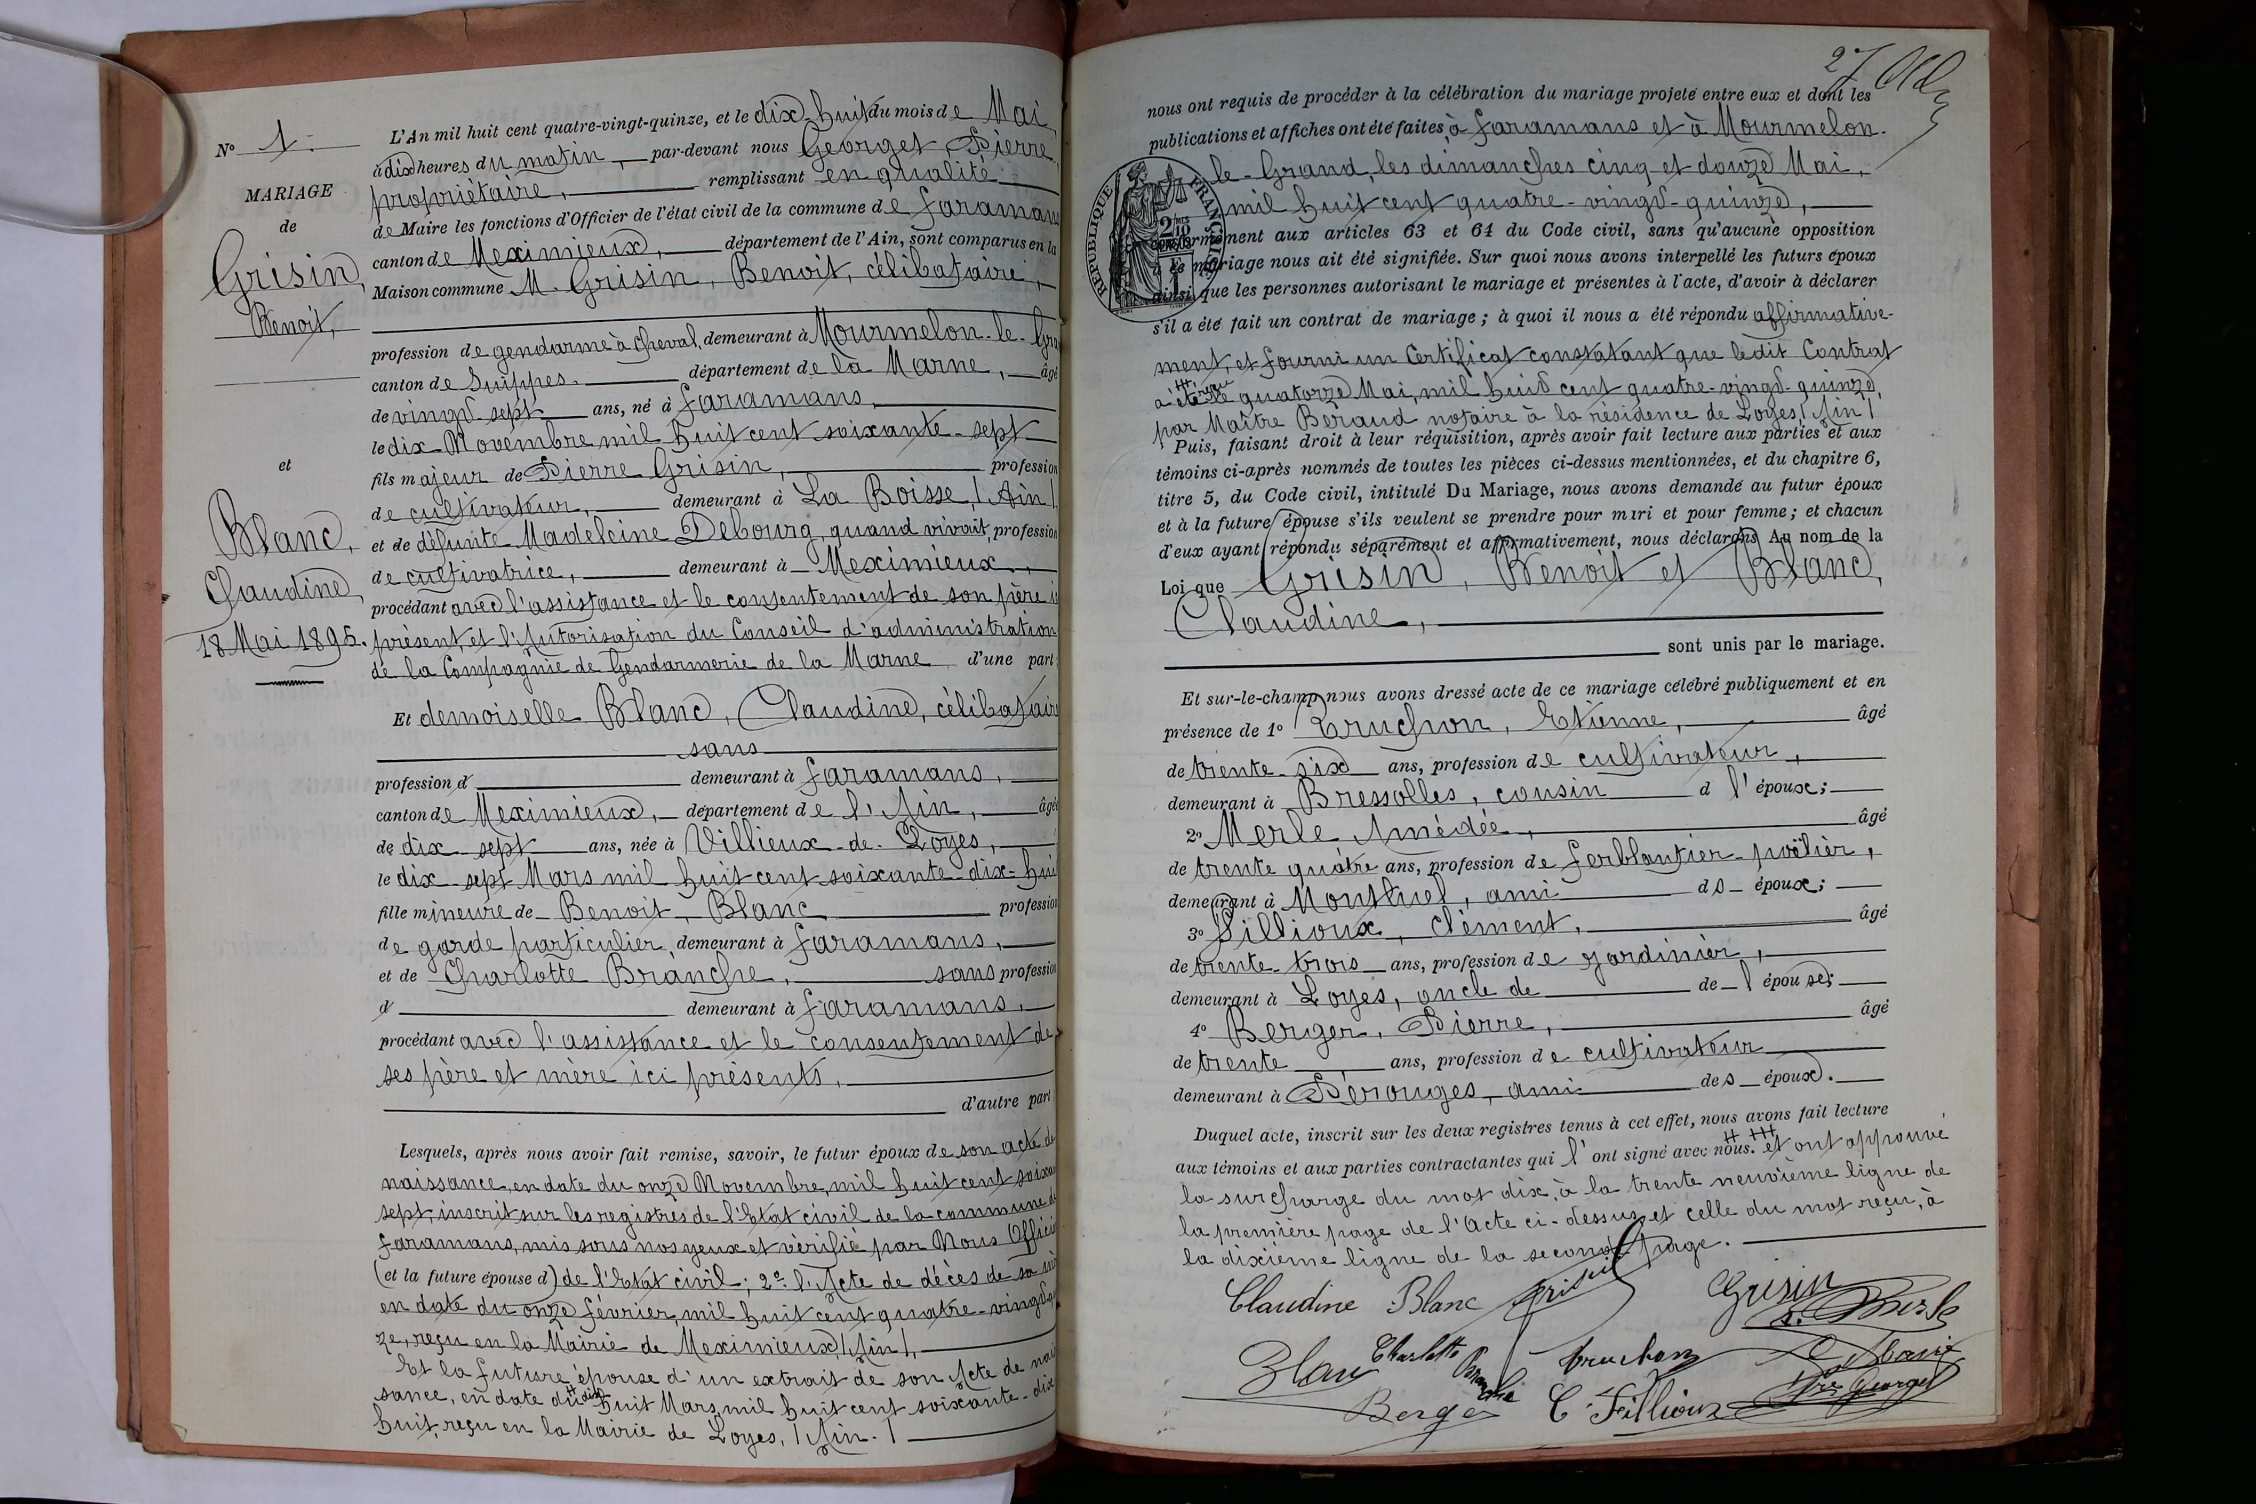 N° 1.
MARIAGE
de
Grisin,
Benoit,
et
Blanc,
Claudine,
18 Mai 1895.
L'An mil huit cent quatre-vingt-quinze, et le dix-huit du mois de Mai,
à dix heures du matin, par-devant nous Georget Pierre,
propriétaire, remplissant en qualité
de Maire les fonctions d'Officier de l'état civil de la commune de Faramans
canton de Meximieux, département de l'Ain, sont comparus en la
Maison commune M. Grisin, Benoit, célibataire,
profession de gendarme à cheval, demeurant à Mourmelon-le-Gra
canton de Suippes. département de la Marne, âgé
de vingt-sept ans, né à Faramans,
le dix Novembre mil huit cent soixante-sept
fils majeur de Pierre Grisin, profession
de cultivateur, demeurant à La Boisse, (Ain),
et de défunte Madeleine Debourg, quand vivait, profession
de cultivatrice, demeurant à Meximieux,
procédant avec l'assistance et le consentement de son père i
présent, et l'Autorisation du Conseil d'administration
de la Compagnie de Gendarmerie de la Marne d'une part
Et demoiselle Blanc, Claudine, célibataire
sans
profession d demeurant à Faramans,
canton de Meximieux, département de l'Ain, âgée
de dix-sept ans, née à Villieux-de-Loyes,
le dix-sept Mars mil huit cent soixante-dix-hui
fille mineure de Benoit, Blanc profession
de garde particulier, demeurant à Faramans,
et de Charlotte Branche, sans profession
d demeurant à Faramans,
procédant avec l'assistance et le consentement de
ses père et mère ici présents,
d'autre part
Lesquels, après nous avoir fait remise, savoir, le futur époux de son acte de
naissance, en date du onze Novembre, mil huit cent soixan
sept, inscrit sur les registres de l'Etat civil de la commune de
Faramans, mis sous nos yeux et vérifié par Nous Officie
(et la future épouse d) de l'Etat civil; 2° l'Acte de décès de sa mè
en date du onze février, mil huit cent quatre-vingt-q
ze, reçu en la Mairie de Meximieux, (Ain),
Et la future épouse d'un extrait de son Acte de nais
sance, en date du ++ dix huit Mars, mil huit cent soixante-dix
huit, reçu en la Mairie de Loyes, (Ain.)
27
nous ont requis de procéder à la célébration du mariage projeté entre eux et dont les
publications et affiches ont été faites, à Faramans et à Mourmelon-
le-Grand, les dimanches cinq et douze Mai,
mil huit cent quatre-vingt-quinze,
RÉPUBLIQUE FRANÇAISE
conformément aux articles 63 et 64 du Code civil, sans qu'aucune opposition
à ce mariage nous ait été signifiée. Sur quoi nous avons interpellé les futurs époux
ainsi que les personnes autorisant le mariage et présentes à l'acte, d'avoir à déclarer
s'il a été fait un contrat de mariage; à quoi il nous a été répondu affirmative-
ment, et fourni un Certificat constatant que ledit Contrat
a été +++ reçu le quatorze Mai, mil huit cent quatre-vingt-quinze,
par Maître Béraud notaire à la résidence de Loyes, (Ain).
Puis, faisant droit à leur réquisition, après avoir fait lecture aux parties et aux
témoins ci-après nommés de toutes les pièces ci-dessus mentionnées, et du chapitre 6,
titre 5, du Code civil, intitulé Du Mariage, nous avons demandé au futur époux
et à la future épouse s'ils veulent se prendre pour mari et pour femme; et chacun
d'eux ayant répondu séparément et affirmativement, nous déclarons Au nom de la
Loi que Grisin, Benoit et Blanc,
Claudine,
sont unis par le mariage.
Et sur-le-champ nous avons dressé acte de ce mariage célébré publiquement et en
présence de 1° Truchon, Etienne, âgé
de trente-six ans, profession de cultivateur,
demeurant à Bressolles, cousin d l'époux;
2° Merle Amédée, âgé
de trente quatre ans, profession de ferblantier-poëlier,
demeurant à Montluel, ami des époux;
3° Fillioux, Clément, âgé
de trente-trois ans, profession de jardinier,
demeurant à Loyes, oncle de de l'épouse;
4° Berger, Pierre, âgé
de trente ans, profession de cultivateur
demeurant à Pérouges, ami des époux.
Duquel acte, inscrit sur les deux registres tenus à cet effet, nous avons fait lecture
aux témoins et aux parties contractantes qui l'ont signé avec nous. ++ +++ et ont approuvé
la surcharge du mot dix, à la trente neuvième ligne de
la première page de l'Acte ci-dessus, et celle du mot reçu, à
la dixième ligne de la seconde page.
Claudine Blanc Grisin Grisin
A. Merle
Blanc Charlotte Branche truchon
Berger C. Fillioux Pre Georget